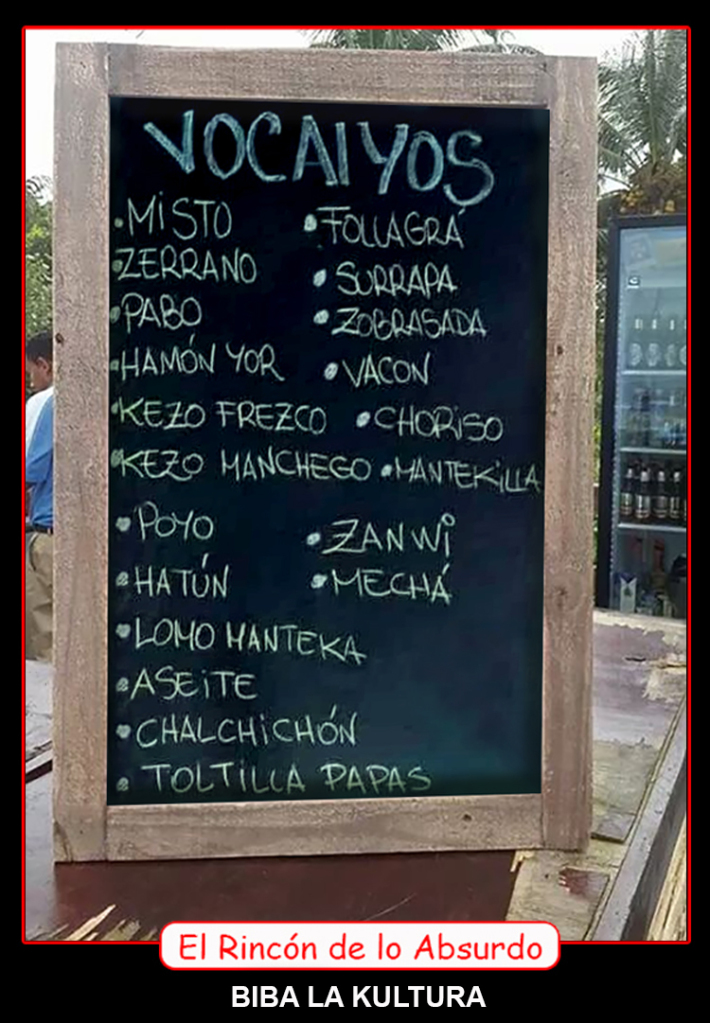 VOCAIYOS
• MiSTO
• ZERRANO
• PABO
• HAMÓN YOR
• KEZO FREZCO
• KEZO MANCHEGO
• POYO
• HATÚN
• LOMO MANTEKA
• ASEiTE
• CHALCHiCHÓN
• TOLTiLLA PAPAS
• FOLLAGRÁ
• SURRAPA
• ZOBRASADA
• VACON
• CHORiSO
• MANTEKiLLA
• ZANWi
• MECHÁ
El Rincón de lo Absurdo
BIBA LA KULTURA